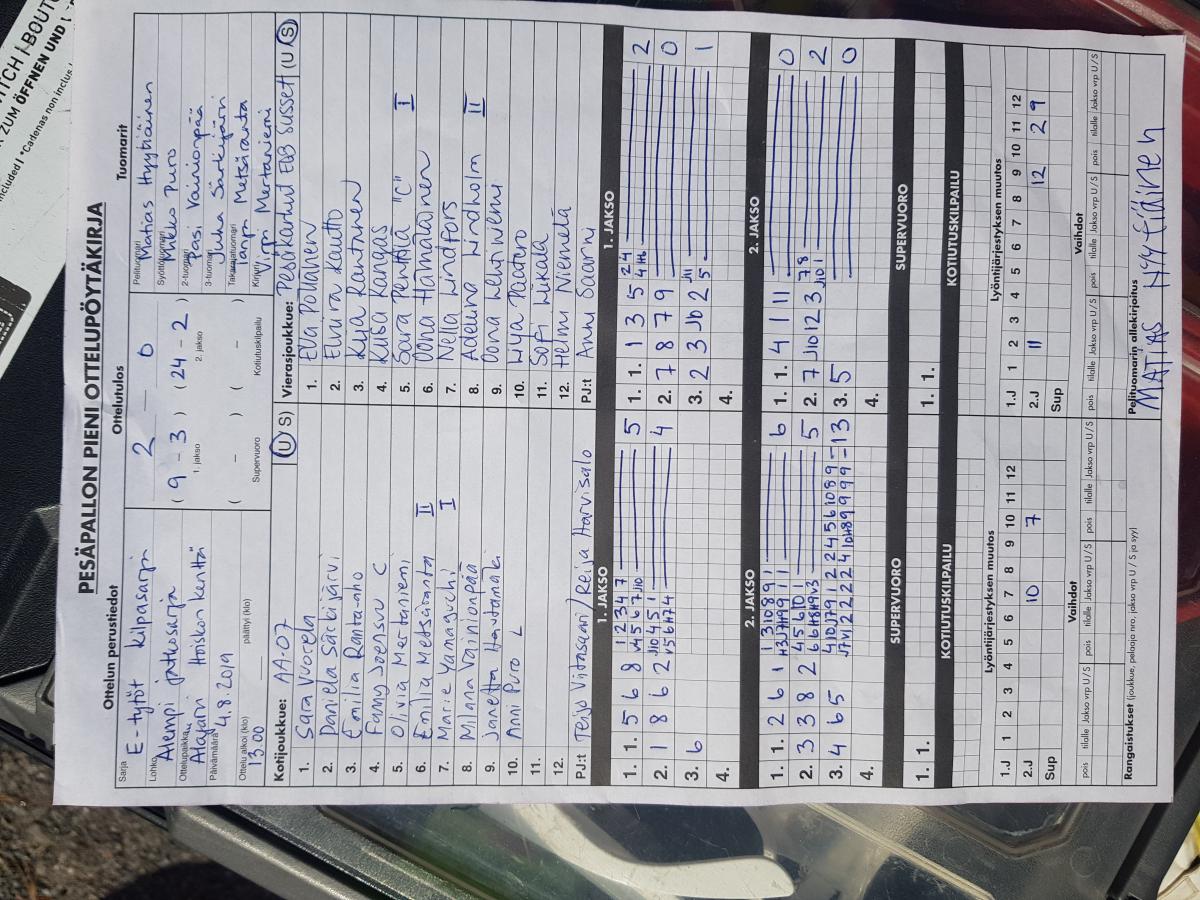 PESÄPALLON PIENI OTTELUPÖYTÄKIRJA
Ottelun perustiedot
Sarja
E-tytöt kilpasarja
Lohko
Alempi jatkosarja
Ottelupaikka
Alajärvi Hoiskon kenttä
Päivämäärä
4.8.2019
Ottelu alkoi (klo)
13.00
päättyi (klo)
Ottelutulos
2 – 0
( 9 – 3 ) ( 24 – 2 )
1. jakso 2. jakso
( – ) ( – )
Supervuoro Kotiutuskilpailu
Tuomarit
Pelituomari
Matias Hyytiäinen
Syöttötuomari
Mikko Puro
2-tuomari
Pasi Vainionpää
3-tuomari
Juha Särkijärvi
Takarajatuomari
Tanja Metsäranta
Kirjuri
Virpi Mertaniemi
Kotijoukkue: AA-07 (U / S)
1. Sara Vuorela
2. Daniela Särkijärvi
3. Emilia Ranta-aho
4. Fanny Joensuu C
5. Olivia Mertaniemi
6. Emilia Metsäranta II
7. Marie Yamaguchi I
8. Milanna Vainionpää
9. Janetta Hautamäki
10. Anni Puro L
11.
12.
PJ:t Teija Viitasaari / Reija Harvisalo
Vierasjoukkue: Pesäkarhut EQB Susset (U / S)
1. Ella Pöllänen
2. Elvira Kautto
3. Kiia Kantinen
4. Kuisa Kangas
5. Saara Penttilä "C" I
6. Oona Hämäläinen
7. Nella Lindfors
8. Adeliina Lindholm II
9. Oona Lehtiniemi
10. Lilja Paaturo
11. Sofi Lukala
12. Helmi Niemelä
PJ:t Anni Saarni
1. JAKSO
1. 1. 5 6 8 1 2 3 4 7 5
2. 1 8 6 2 4
3. 6
4.
1. JAKSO
1. 1. 1 3 5 2 4 2
2. 7 8 7 9 0
3. 2 3 J6 2 5 J11 1
4.
2. JAKSO
1. 1. 2 6 1 1 3 10 8 9 1 6
2. 3 3 8 2 4 5 6 10 1 5
3. 4 6 5 4 10 J9 1 2 2 4 5 6 10 8 9 – 13
4.
2. JAKSO
1. 1. 4 1 11 0
2. 7 J10 12 3 7 8 2
3. 5 0
4.
SUPERVUORO
1. 1.
SUPERVUORO
1. 1.
KOTIUTUSKILPAILU
KOTIUTUSKILPAILU
Lyöntijärjestyksen muutos
1.J 1 2 3 4 5 6 7 8 9 10 11 12
2.J 10 7
Sup
Lyöntijärjestyksen muutos
1.J 1 2 3 4 5 6 7 8 9 10 11 12
2.J 11 12 2 9
Sup
Vaihdot
pois tilalle Jakso vrp U / S pois tilalle Jakso vrp U / S pois tilalle Jakso vrp U / S
Vaihdot
pois tilalle Jakso vrp U / S pois tilalle Jakso vrp U / S pois tilalle Jakso vrp U / S
Rangaistukset (joukkue, pelaaja nro, jakso vrp U / S ja syy)
Pelituomarin allekirjoitus
MATIAS HYYTIÄINEN
ZUM ÖFFNEN UND
included / *Cadenas non inclus /